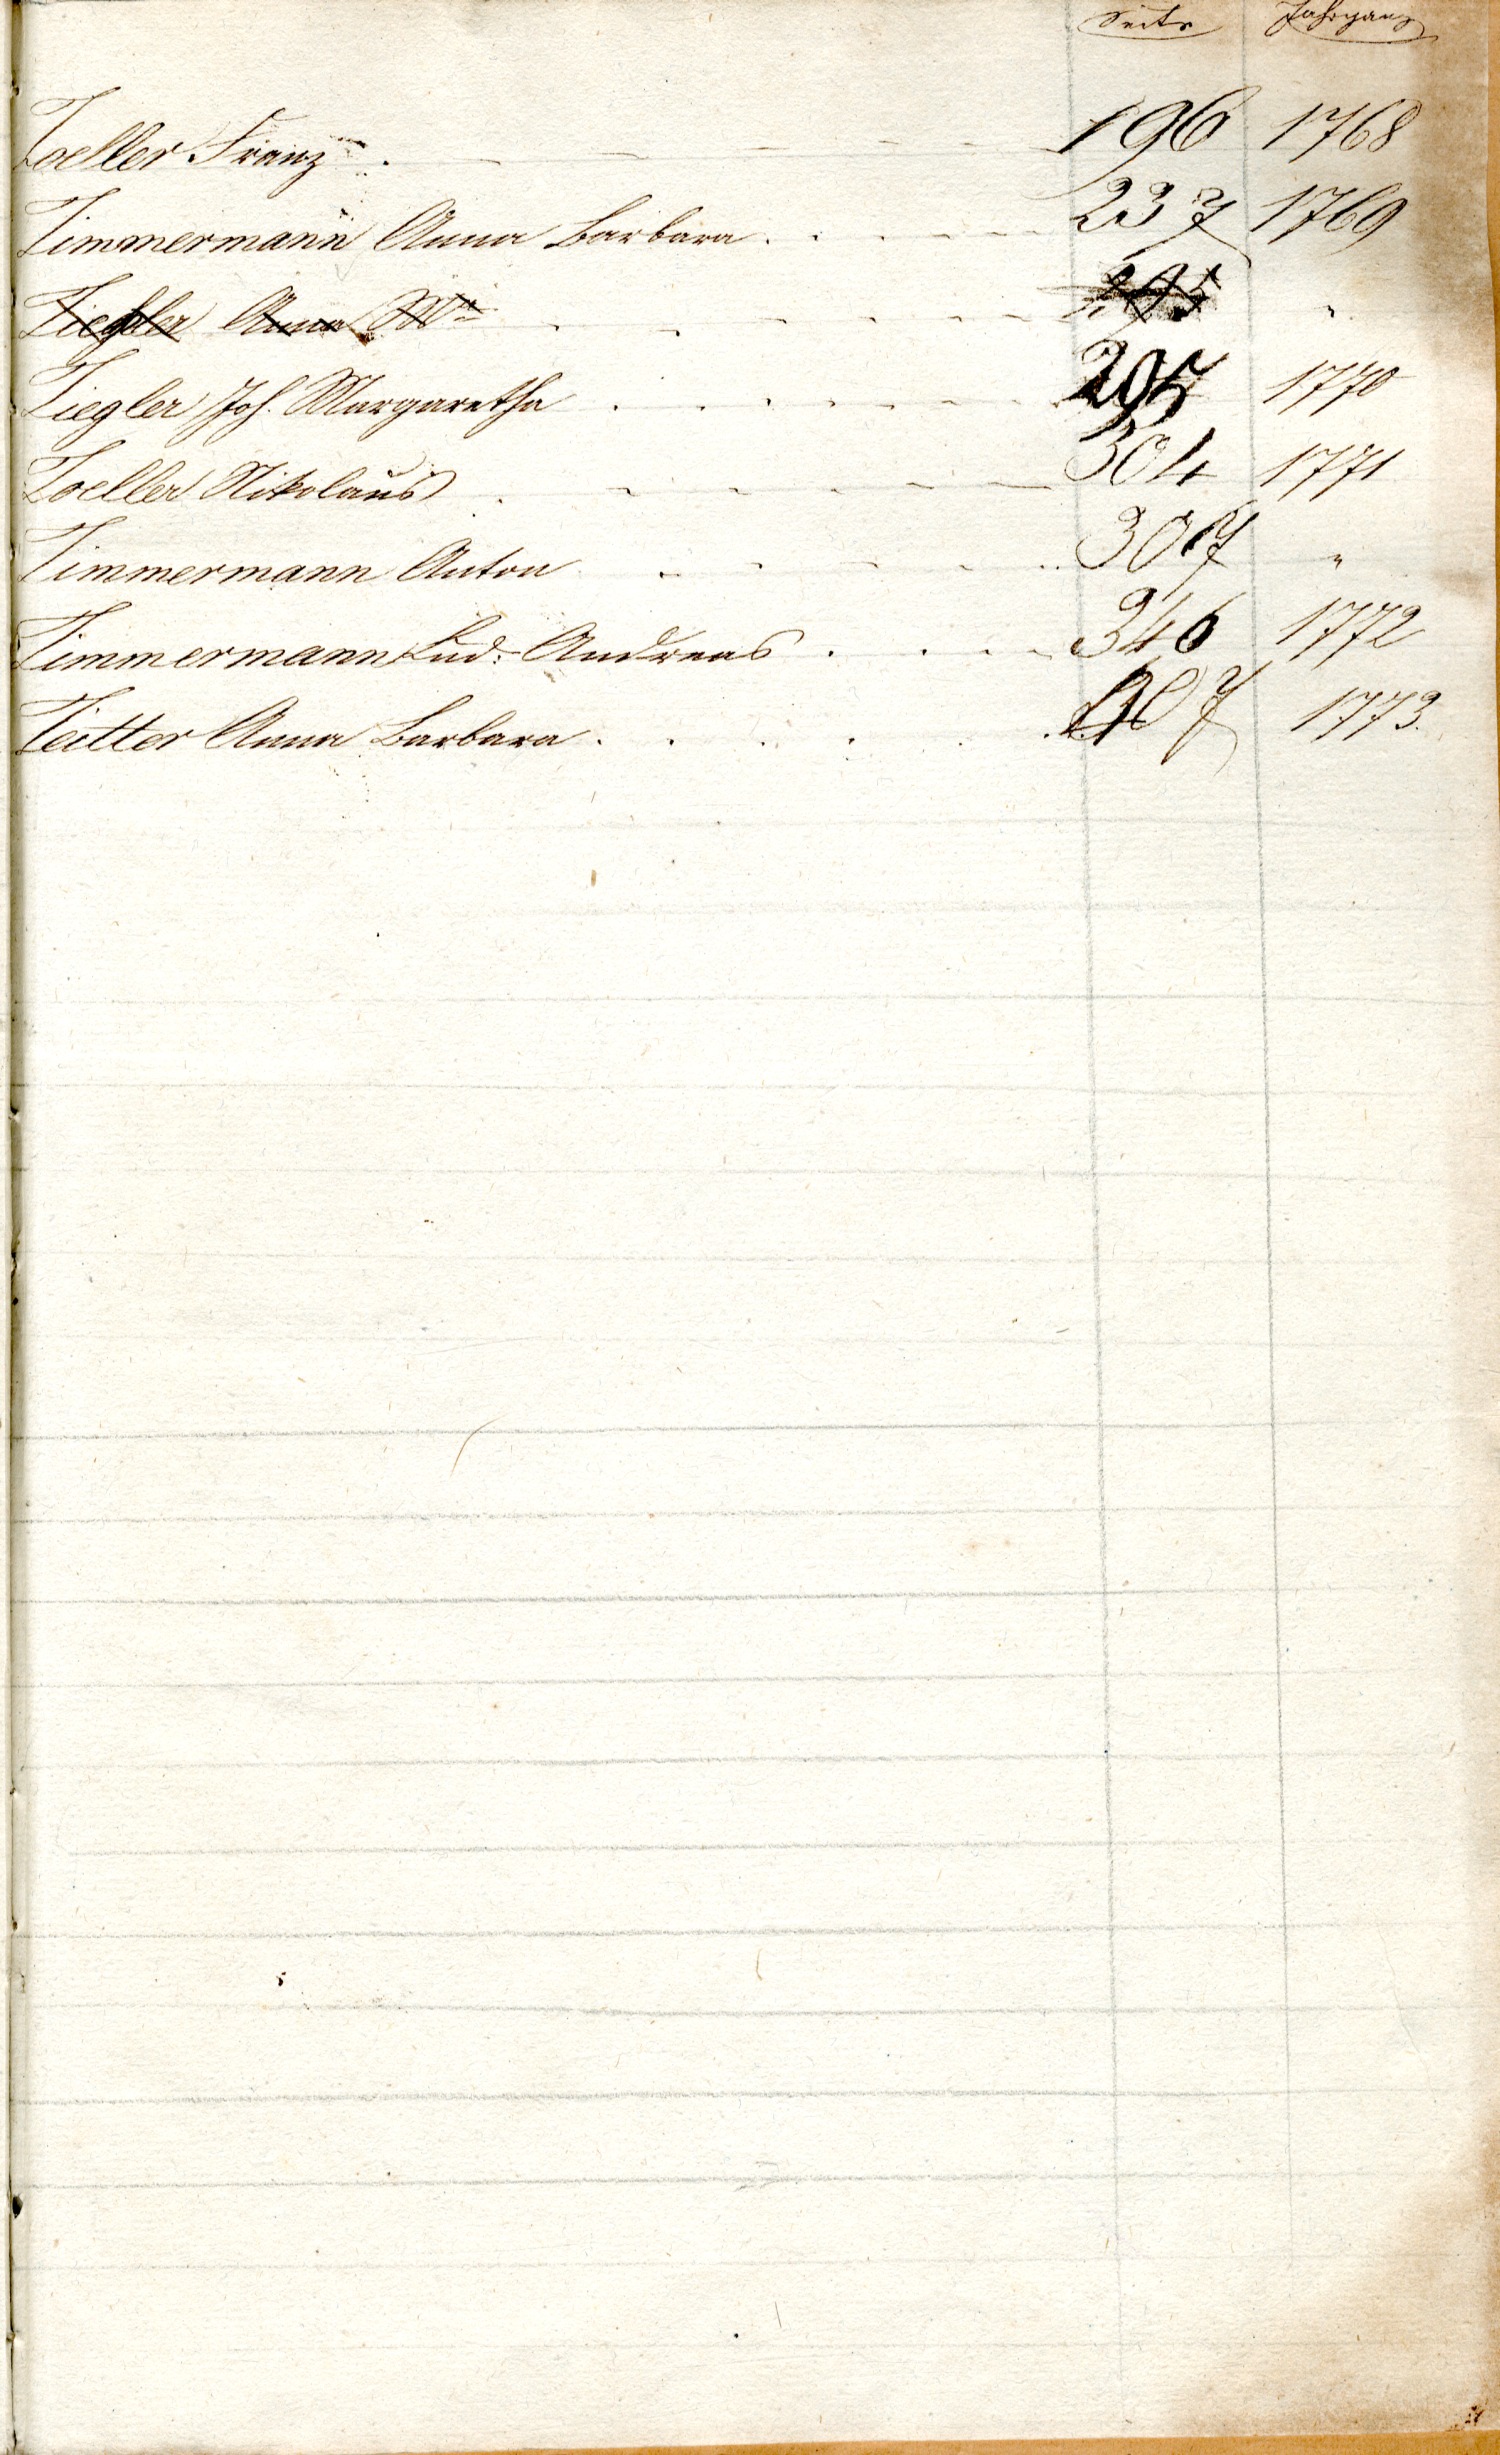 Seite Jahrgang
Zoeller Franz . 196 1768
Zimmermann Anna Barbara . 237 1769
Ziegler Anna Mª 295 "
Ziegler Joh. Margaretha . 295 1770
Zoeller Nikolaus . 304 1771
Zimmermann Anton . 307 "
Zimmermann Lud: Andreas . 346 1772
Zeitter Anna Barbara . 407 1773.